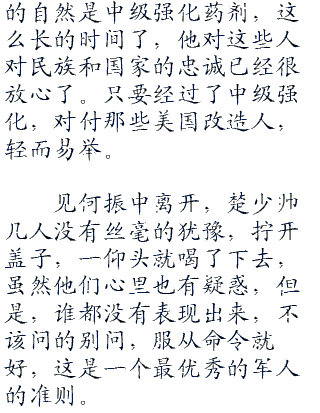 的自然是中级强化药剂，这
么长的时间了，他对这些人
对民族和国家的忠诚已经很
放心了。只要经过了中级强
化，对付那些美国改造人，
轻而易举。
见何振中离开，楚少帅
几人没有丝毫的犹豫，拧开
盖子，一仰头就喝了下去，
虽然他们心里也有疑惑，但
是，谁都没有表现出来，不
该问的别问，服从命令就
好，这是一个最优秀的军人
的准则。